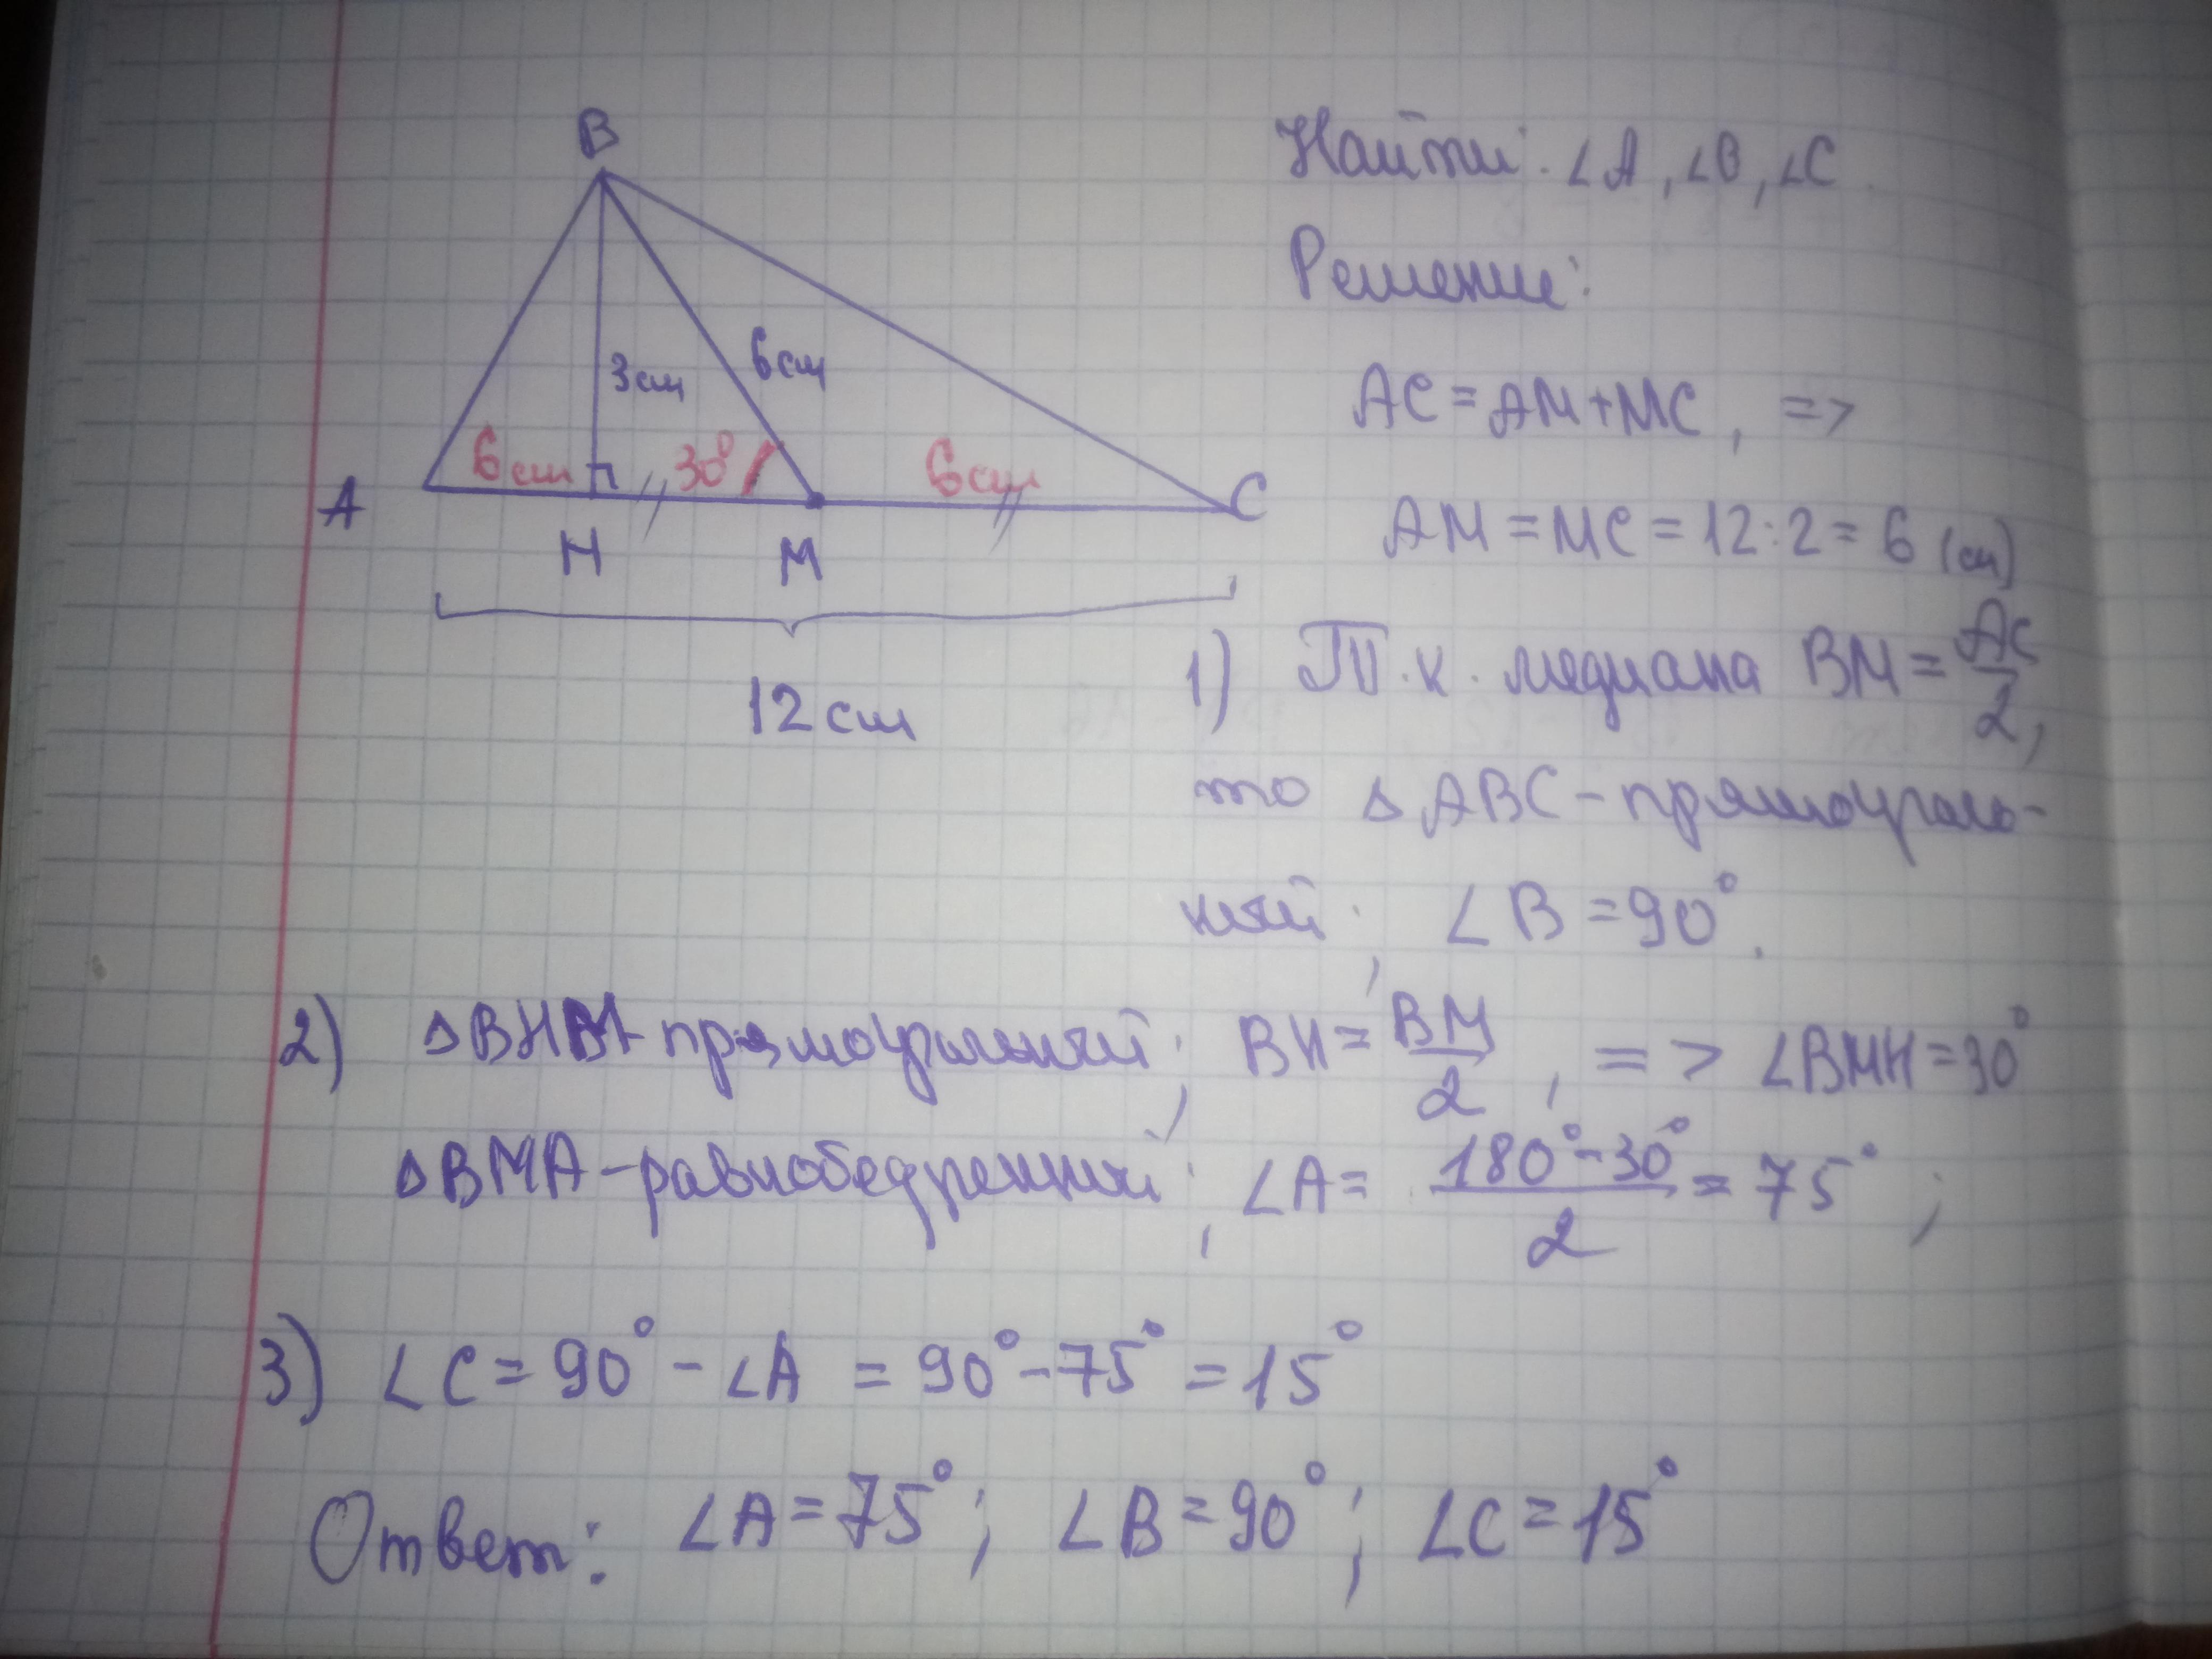 B
Найти: ∠A, ∠B, ∠C
Решение:
3см
6см
AC = AM+MC, =>
6см
30°
6см
A
C
H
M
AM = MC = 12:2 = 6 (см)
12см
1) Т.к. медиана BM = AC/2,
то △ABC – прямоуголь-
ный; ∠B = 90°.
2) △BHM – прямоугольный; BH = BM/2, => ∠BMH = 30°
△BMA – равнобедренный; ∠A = (180° - 30°)/2 = 75°;
3) ∠C = 90° - ∠A = 90° - 75° = 15°
Ответ: ∠A = 75°; ∠B = 90°; ∠C = 15°